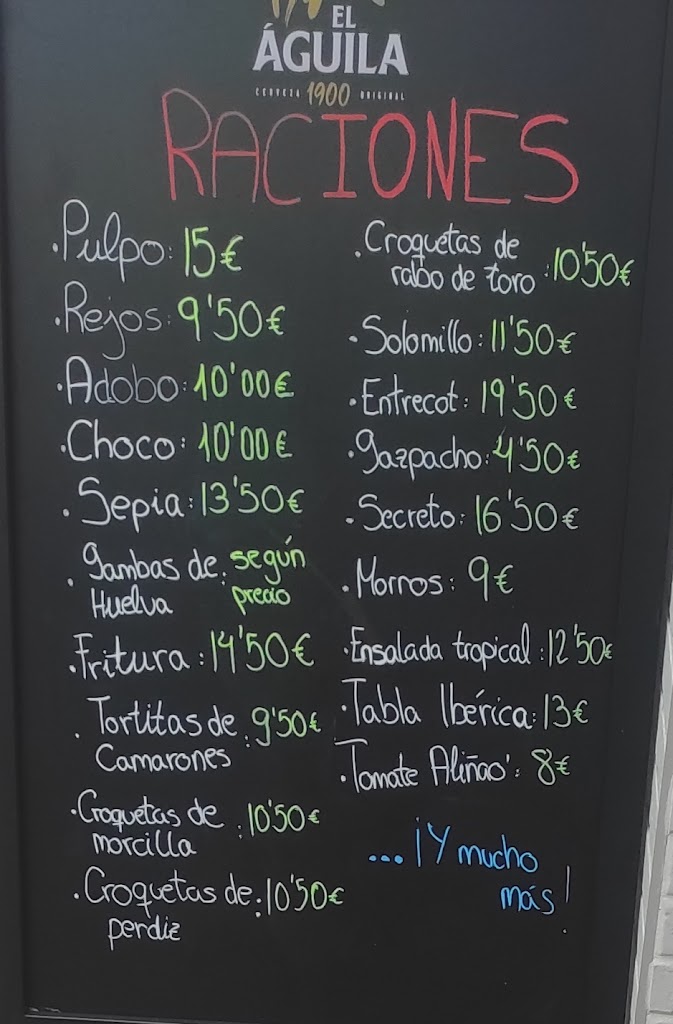 EL
ÁGUILA
CERVEZA 1900 ORIGINAL
RACIONES
.Pulpo: 15€
.Rejos: 9'50€
.Adobo: 10'00€
.Choco: 10'00€
.Sepia: 13'50€
.Gambas de : según
Huelva precio
.Fritura: 14'50€
.Tortitas de : 9'50€
Camarones
.Croquetas de : 10'50€
morcilla
.Croquetas de : 10'50€
perdiz
.Croquetas de
rabo de toro : 10'50€
.Solomillo: 11'50€
.Entrecot: 19'50€
.Gazpacho: 4'50€
.Secreto: 16'50€
.Morros: 9€
.Ensalada tropical: 12'50€
.Tabla Ibérica: 13€
.Tomate Aliñao': 8€
...¡Y mucho
más!